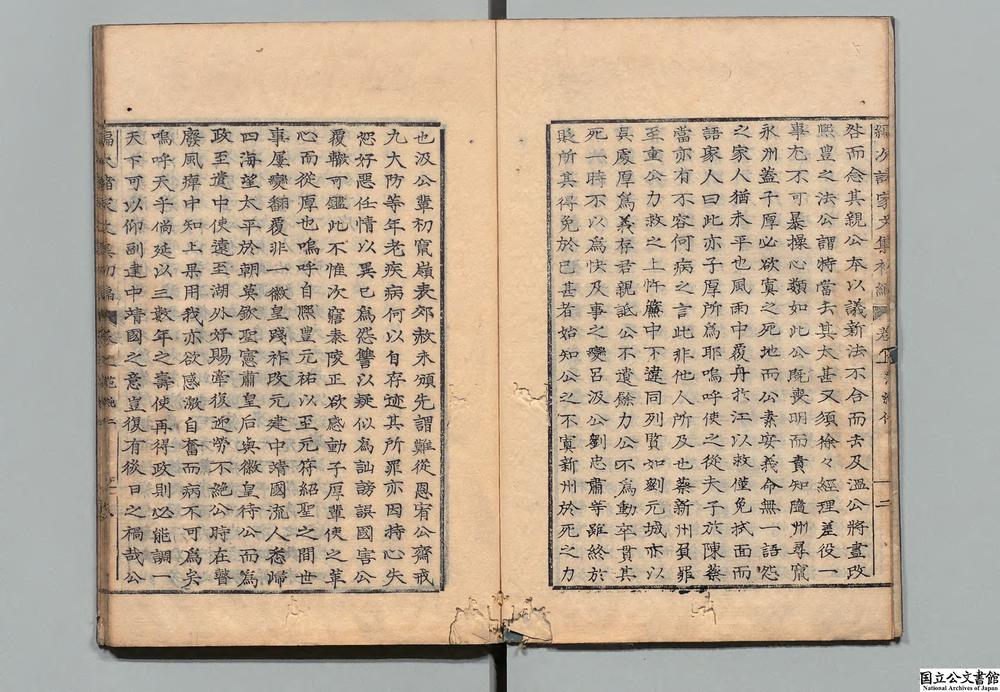 咎而念其親公本以議新法不合而去及溫公將盡改
熙豊之法公謂特當去其太甚又須徐々經理差役一
事尤不可暴操心類如此公旣喪明而責知隨州尋竄
永州蓋子厚必欲寘之死地而公素安義命無一語怨
之家人猶未平也風雨中覆舟於江以救僅免拭面而
語家人曰此亦子厚所爲耶嗚呼使之從夫子於陳蔡
當亦有不容何病之言此非他人所及也蔡新州負罪
至重公力救之上忤簾中下違同列賢如劉元城亦以
其處厚爲義存君親詆公不遺餘力公不爲動卒貫其
死一時不以爲快及事之變呂汲公劉忠肅等雖終於
貶所其得免於已甚者始知公之不寘新州於死之力
也汲公輩初竄嶺表郊赦未頒先謂難從恩宥公齋戒
九大防等年老疾病何以自存迹其所罪亦因持心失
恕好惡任情以異已爲怨讐以疑似爲訕謗誤國害公
覆轍可鑑此不惟次窹泰陵正欲感動子厚輩使之革
心而從厚也嗚呼自熙豊元祐以至元符紹聖之間世
事屢變翻覆非一徽皇踐祚改元建中靖國流人悉歸
四海望太平於朝莫欽聖憲肅皇后與徽皇待公而爲
政至遣中使遠至湖外好賜牽復迎勞不絶公時在瞽
廢風痺中知上果用我亦欲感激自奮而病不可爲矣
嗚呼天乎倘延以三數年之壽使再得政則必能調一
天下可以仰副建中靖國之意豈復有後日之禍哉公
国立公文書館
National Archives of Japan